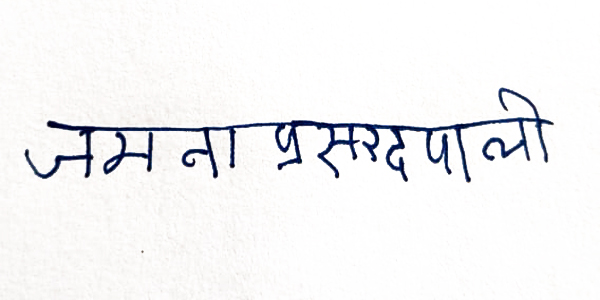 जमना प्रसरदपाली